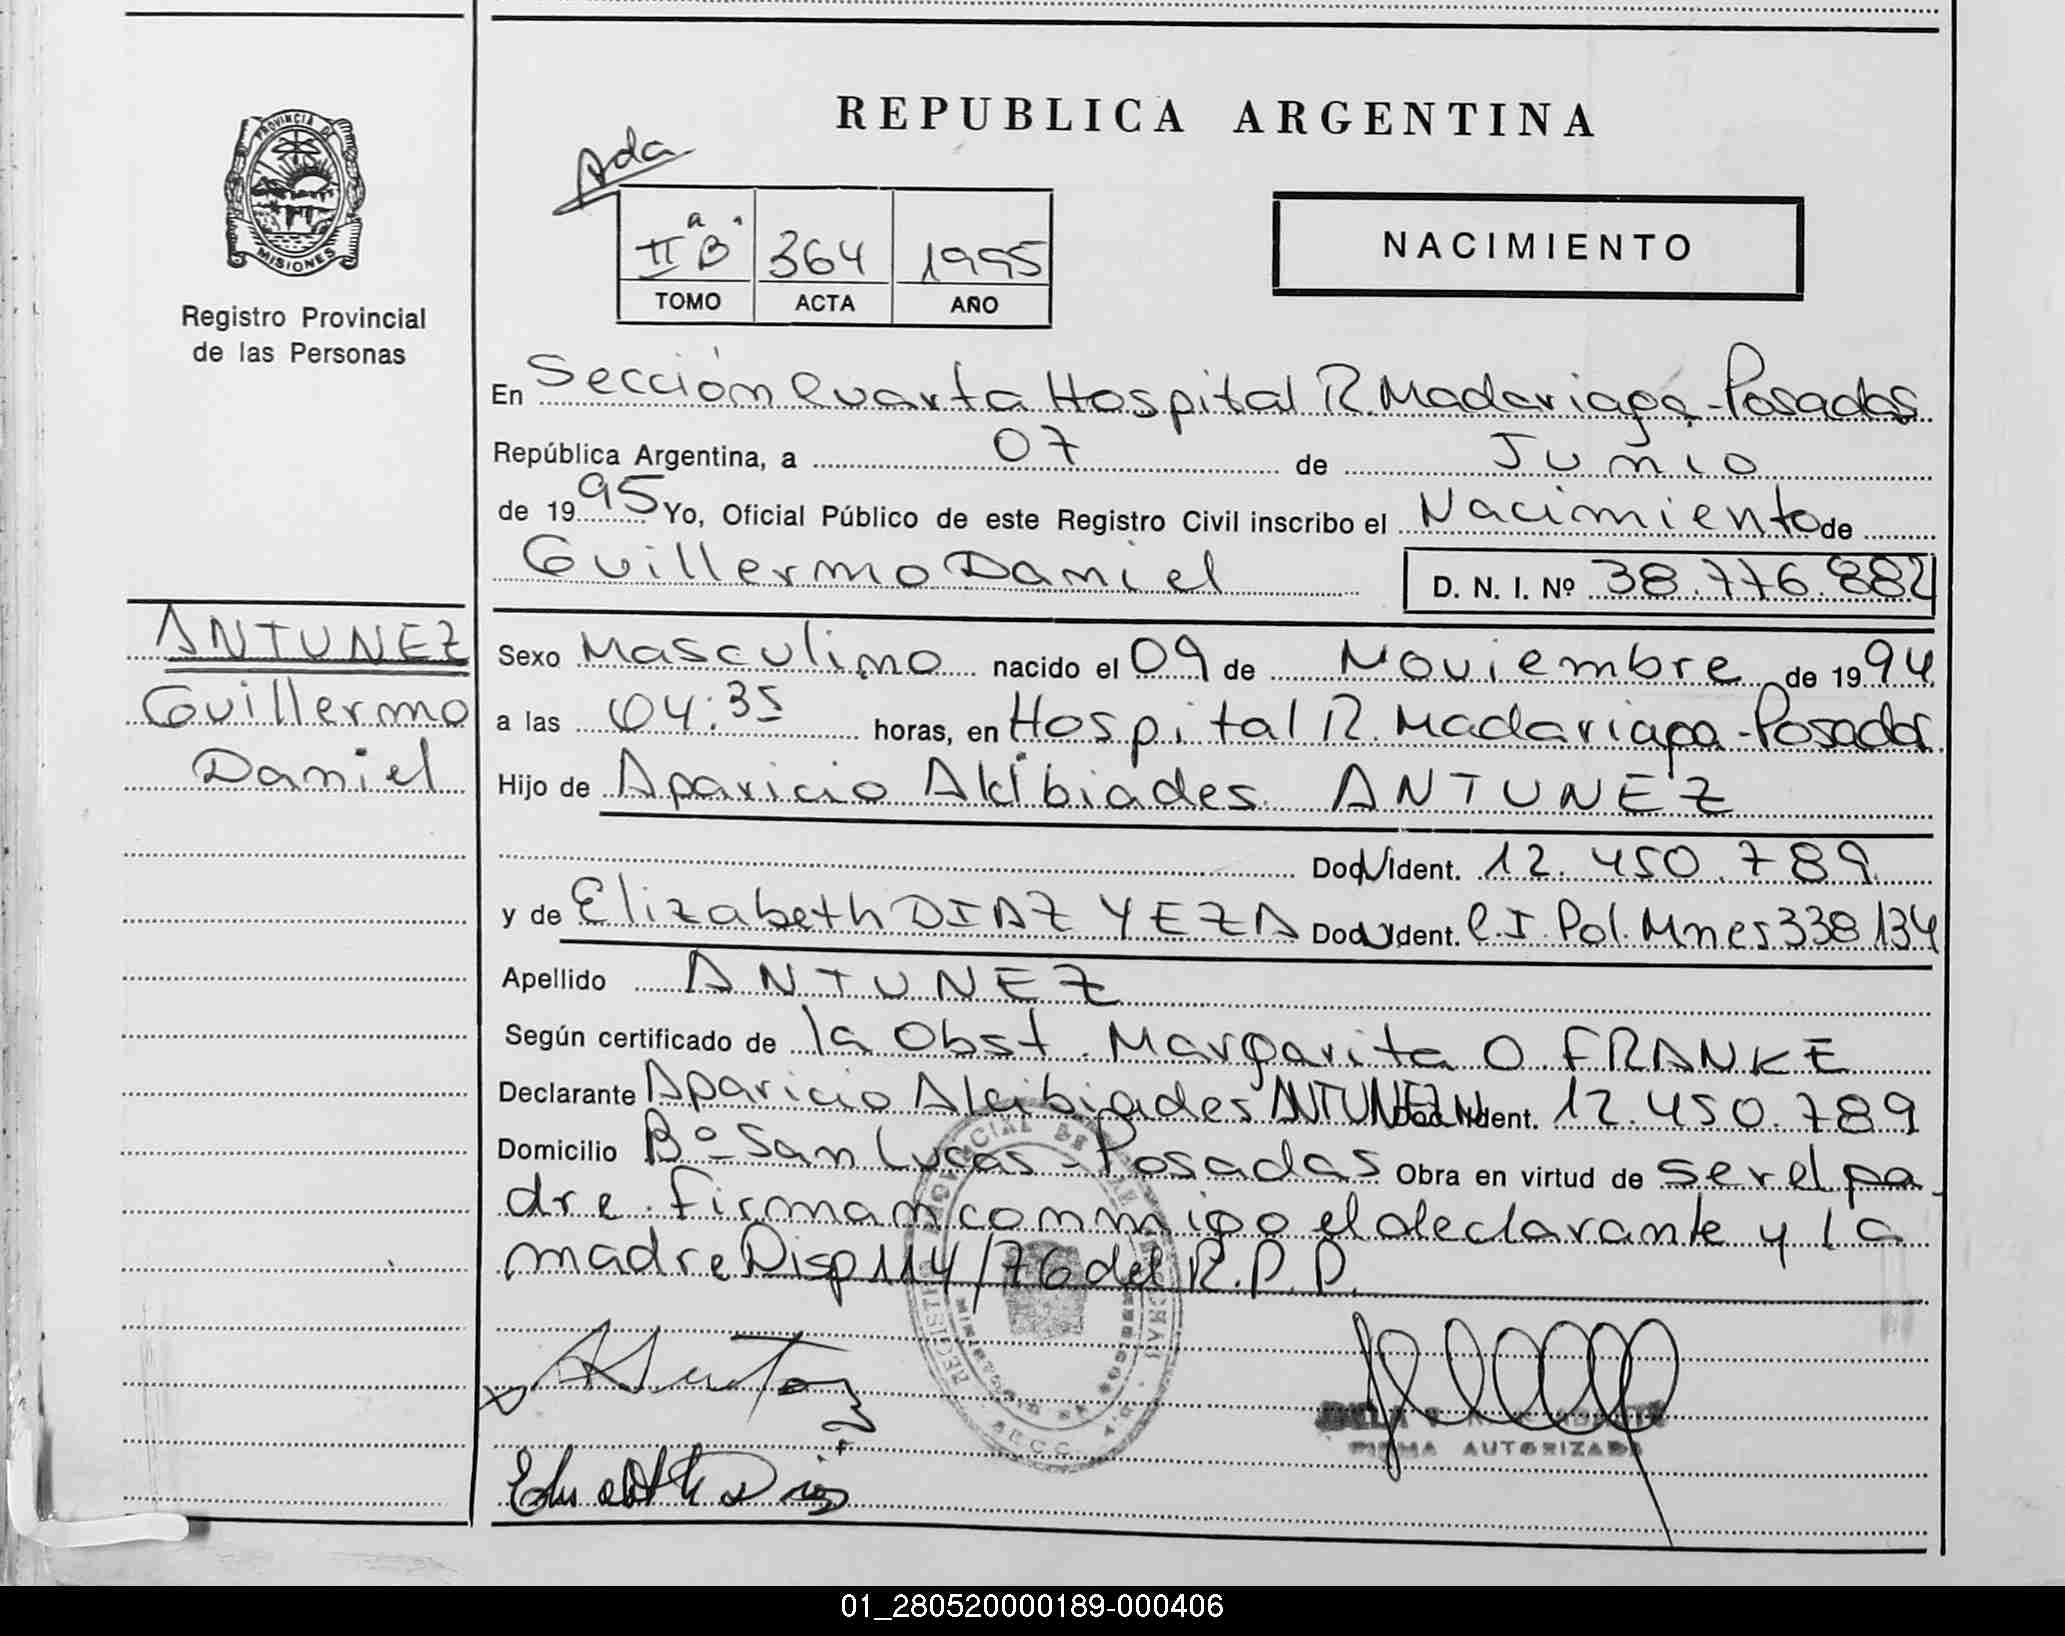 REPUBLICA ARGENTINA
Ada
PROVINCIA DE
MISIONES
Registro Provincial
de las Personas
IIª B 364 1995
TOMO ACTA AÑO
NACIMIENTO
En Sección Cuarta Hospital R. Madariaga - Posadas
República Argentina, a 07 de Junio
de 1995 Yo, Oficial Público de este Registro Civil inscribo el Nacimiento de
Guillermo Daniel D. N. I. Nº 38.776.882
ANTUNEZ
Guillermo
Daniel
Sexo Masculino nacido el 09 de Noviembre de 1994
a las 04:35 horas, en Hospital R. Madariaga - Posadas
Hijo de Aparicio Alcibiades ANTUNEZ
Doc. Ident. 12.450.789
y de Elizabeth DIAZ YEZA Doc. Ident. C.I. Pol. Mnes 338.134
Apellido ANTUNEZ
Según certificado de la Obst. Margarita O FRANKE
Declarante Aparicio Alcibiades ANTUNEZ Doc. Ident. 12.450.789
Domicilio Bº San Lucas - Posadas Obra en virtud de ser el pa-
dre. Firman conmigo el declarante y la
madre Disp 114/76 del R.P.P.
FIRMA AUTORIZADA
01_280520000189-000406